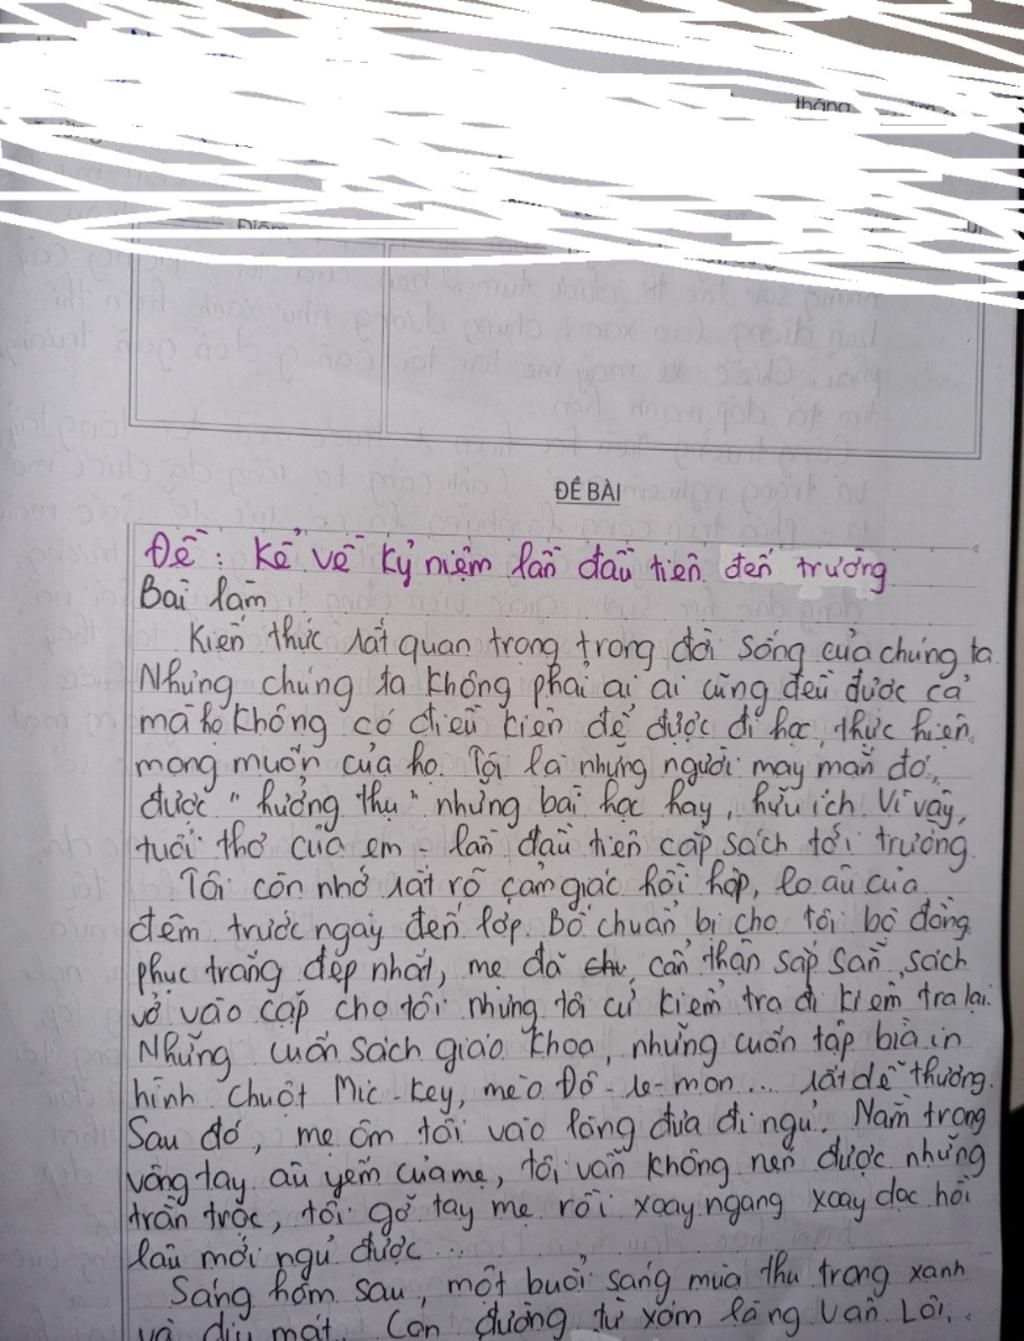 tháng
Điểm
ĐỀ BÀI
Đề: Kể về kỷ niệm lần đầu tiên đến trường
Bài làm
Kiến thức rất quan trọng trong đời sống của chúng ta.
Nhưng chúng ta không phải ai ai cũng đều được cả
mà họ không có điều kiện để được đi học, thực hiện
mong muốn của họ. Tôi là những người may mắn đó,
được "hưởng thụ" những bài học hay, hữu ích. Vì vậy,
tuổi thơ của em - lần đầu tiên cắp sách tới trường.
Tôi còn nhớ rất rõ cảm giác hồi hộp, lo âu của
đêm trước ngày đến lớp. Bố chuẩn bị cho tôi bộ đồng
phục trắng đẹp nhất, mẹ đã cẩn thận sắp sẵn sách
vở vào cặp cho tôi nhưng tôi cứ kiểm tra đi kiểm tra lại.
Những cuốn sách giáo khoa, những cuốn tập bìa in
hình chuột Mic-key, mèo Đô-rê-mon... rất dễ thương.
Sau đó, mẹ ôm tôi vào lòng đưa đi ngủ. Nằm trong
vòng tay âu yếm của mẹ, tôi vẫn không nén được những
trằn trọc, tôi gỡ tay mẹ rồi xoay ngang xoay dọc hồi
lâu mới ngủ được...
Sáng hôm sau, một buổi sáng mùa thu trong xanh
và dịu mát. Con đường từ xóm làng Vân Lôi,